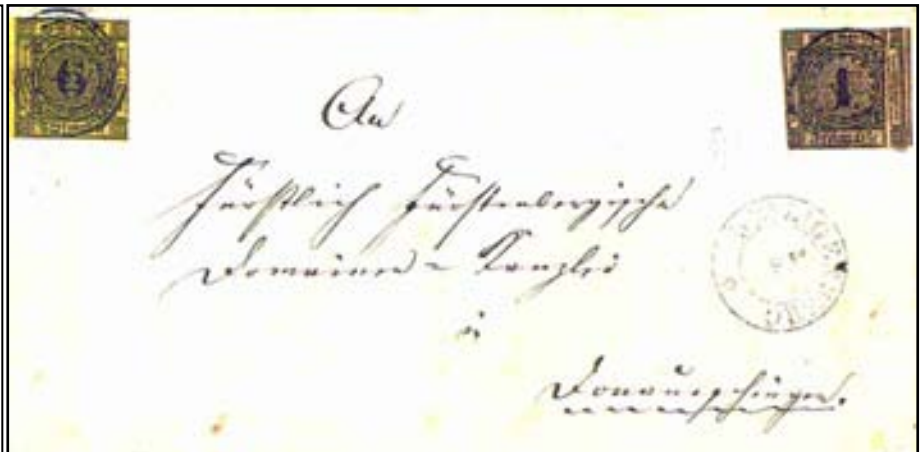 6
1
An
Fürstlich Fürstenbergische
Domainen-Kanzlei
in
Donaueschingen.